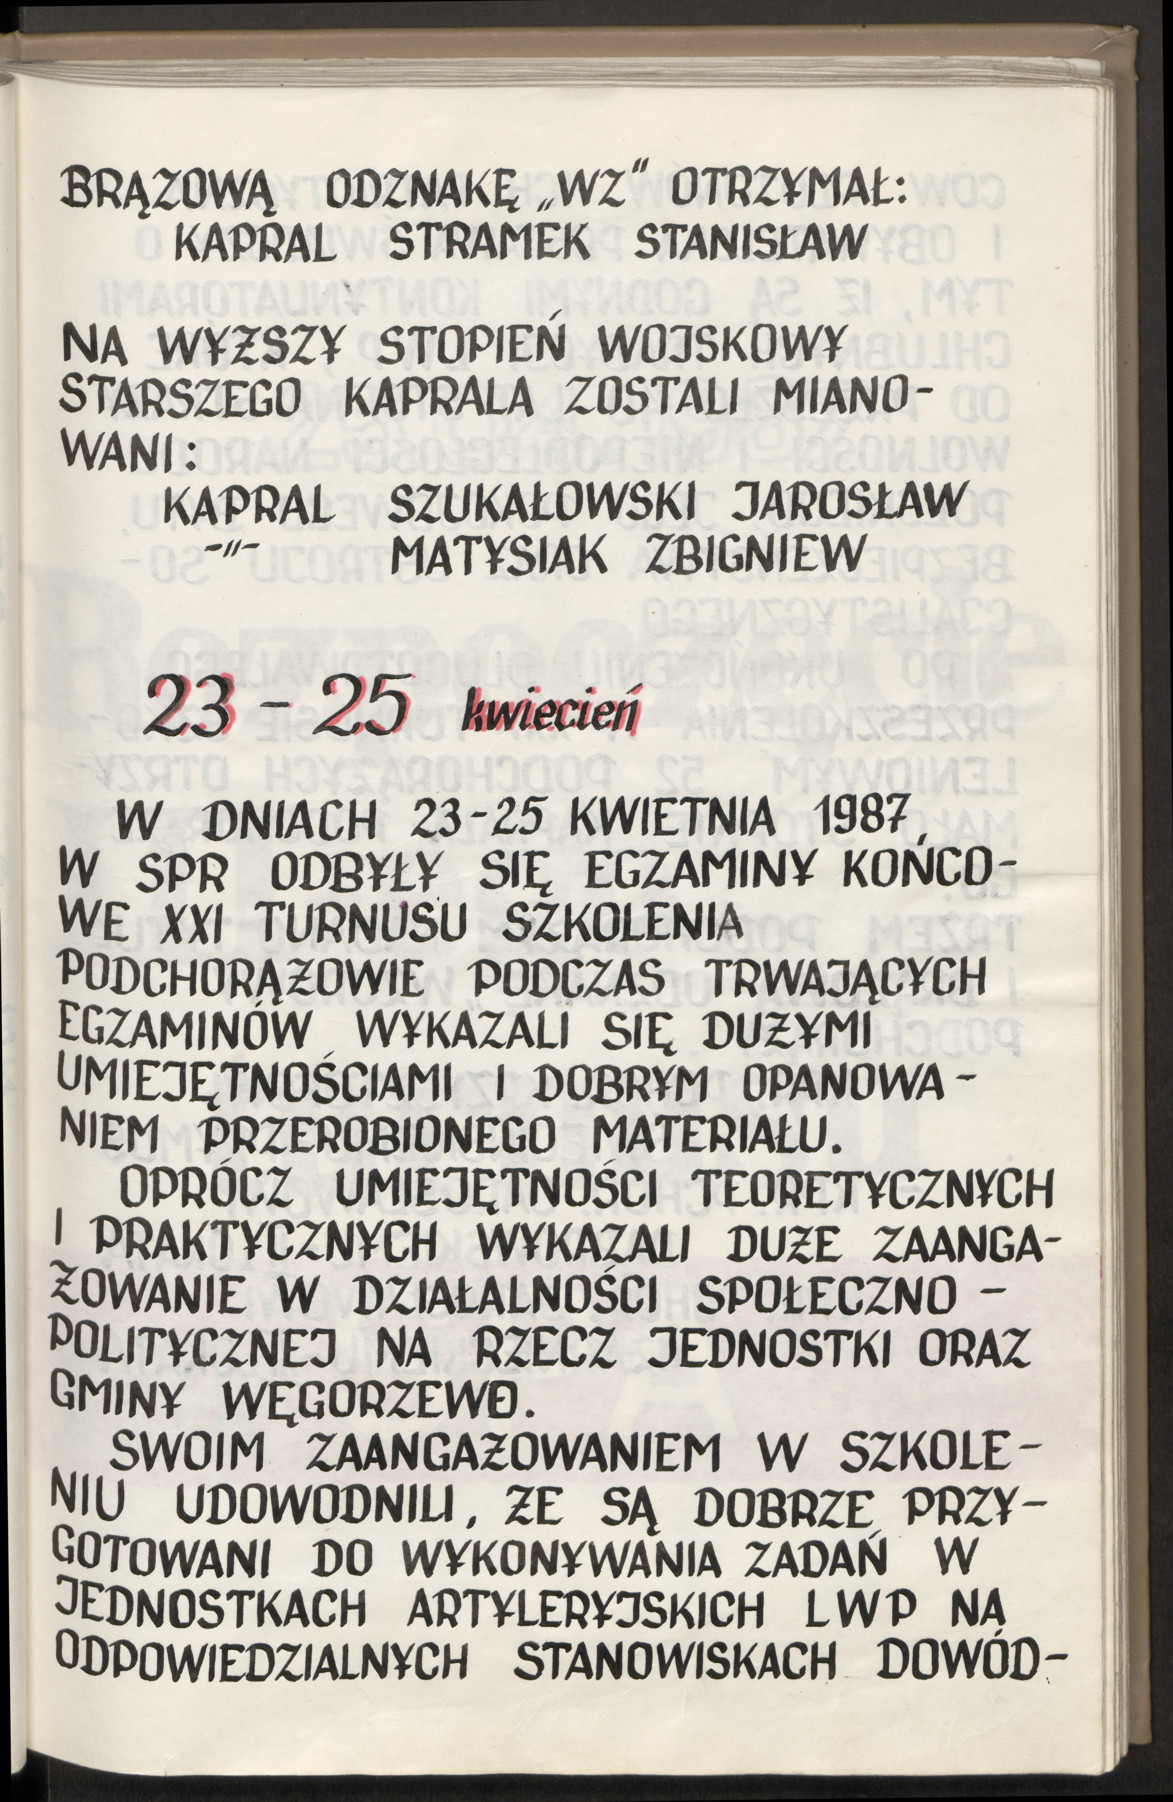 BRĄZOWĄ ODZNAKĘ „WZ" OTRZYMAŁ:
KAPRAL STRAMEK STANISŁAW
NA WYŻSZY STOPIEŃ WOJSKOWY
STARSZEGO KAPRALA ZOSTALI MIANO-
WANI:
KAPRAL SZUKAŁOWSKI JAROSŁAW
-"- MATYSIAK ZBIGNIEW
23 - 25 kwiecień
W DNIACH 23-25 KWIETNIA 1987,
W SPR ODBYŁY SIĘ EGZAMINY KOŃCO-
WE XXI TURNUSU SZKOLENIA
PODCHORĄŻOWIE PODCZAS TRWAJĄCYCH
EGZAMINÓW WYKAZALI SIĘ DUŻYMI
UMIEJĘTNOŚCIAMI I DOBRYM OPANOWA-
NIEM PRZEROBIONEGO MATERIAŁU.
OPRÓCZ UMIEJĘTNOŚCI TEORETYCZNYCH
I PRAKTYCZNYCH WYKAZALI DUŻE ZAANGA-
ŻOWANIE W DZIAŁALNOŚCI SPOŁECZNO -
POLITYCZNEJ NA RZECZ JEDNOSTKI ORAZ
GMINY WĘGORZEWO.
SWOIM ZAANGAŻOWANIEM W SZKOLE-
NIU UDOWODNILI, ŻE SĄ DOBRZE PRZY-
GOTOWANI DO WYKONYWANIA ZADAŃ W
JEDNOSTKACH ARTYLERYJSKICH LWP NA
ODPOWIEDZIALNYCH STANOWISKACH DOWÓD-